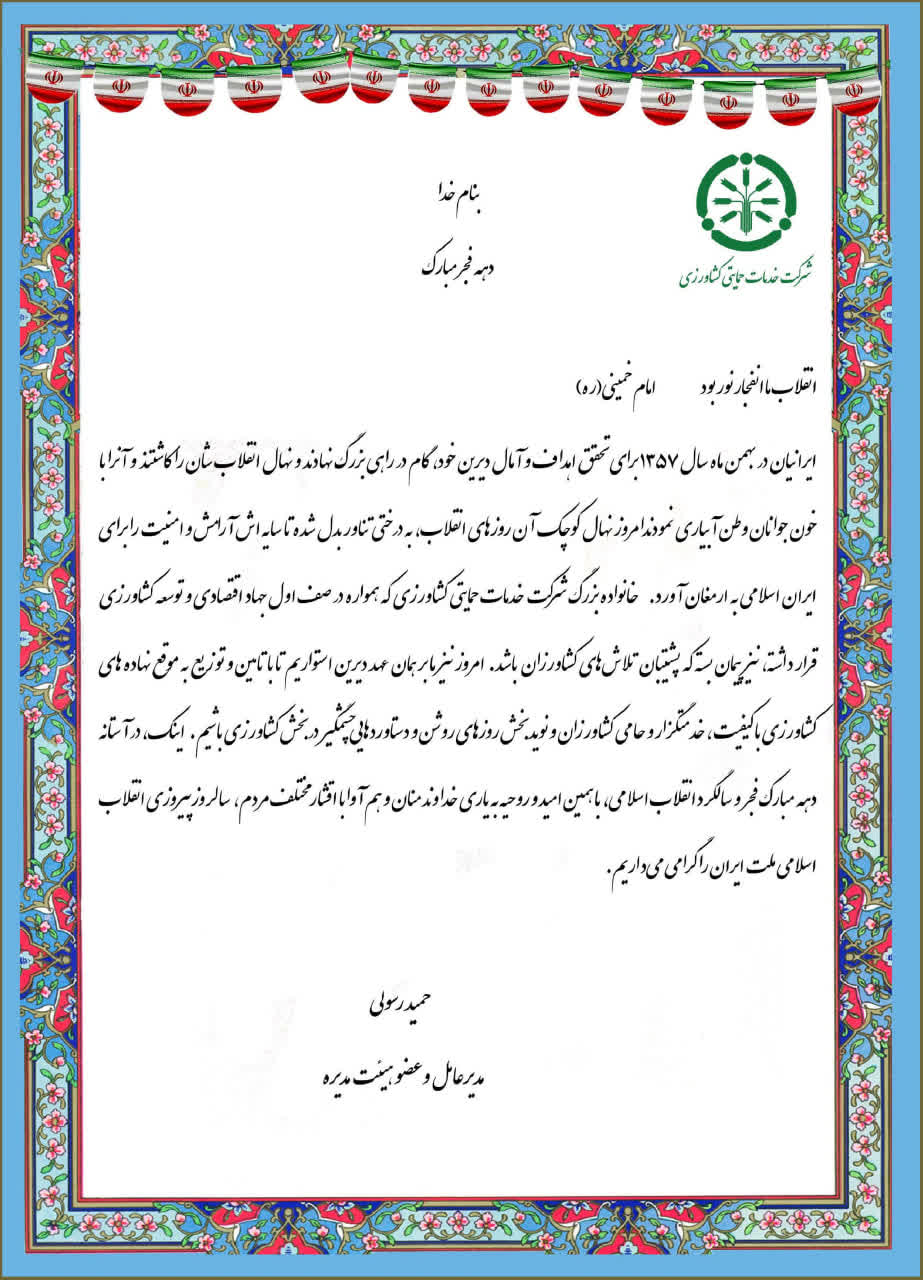 بنام خدا
دهه فجر مبارک
شرکت خدمات حمایتی کشاورزی
انقلاب ما انفجار نور بود امام خمینی(ره)
ایرانیان در بهمن ماه سال ۱۳۵۷برای تحقق اهداف و آمال دیرین خود، گام در راهی بزرگ نهادند و نهال انقلاب شان را کاشتند و آنرا با
خون جوانان وطن آبیاری نمودندامروز نهال کوچک آن روزهای انقلاب، به درختی تناور بدل شده تا سایه اش آرامش و امنیت را برای
ایران اسلامی به ارمغان آورد. خانواده بزرگ شرکت خدمات حمایتی کشاورزی که همواره در صف اول جهاد اقتصادی و توسعه کشاورزی
قرار داشته، نیزپیمان بسته که پشتیبان تلاش های کشاورزان باشد. امروز نیز ما بر همان عهد دیرین استواریم تا با تامین و توزیع به موقع نهاده های
کشاورزی باکیفیت، خدمتگزار و حامی کشاورزان و نوید بخش روزهای روشن و دستاوردهایی چشمگیر در بخش کشاورزی باشیم. اینک، در آستانه
دهه مبارک فجر و سالگرد انقلاب اسلامی، با همین امید و روحیه به یاری خداوند منان و هم آوا با اقشار مختلف مردم، سالروز پیروزی انقلاب
اسلامی ملت ایران را گرامی می‌داریم.
حمید رسولی
مدیرعامل و عضو هیئت مدیره